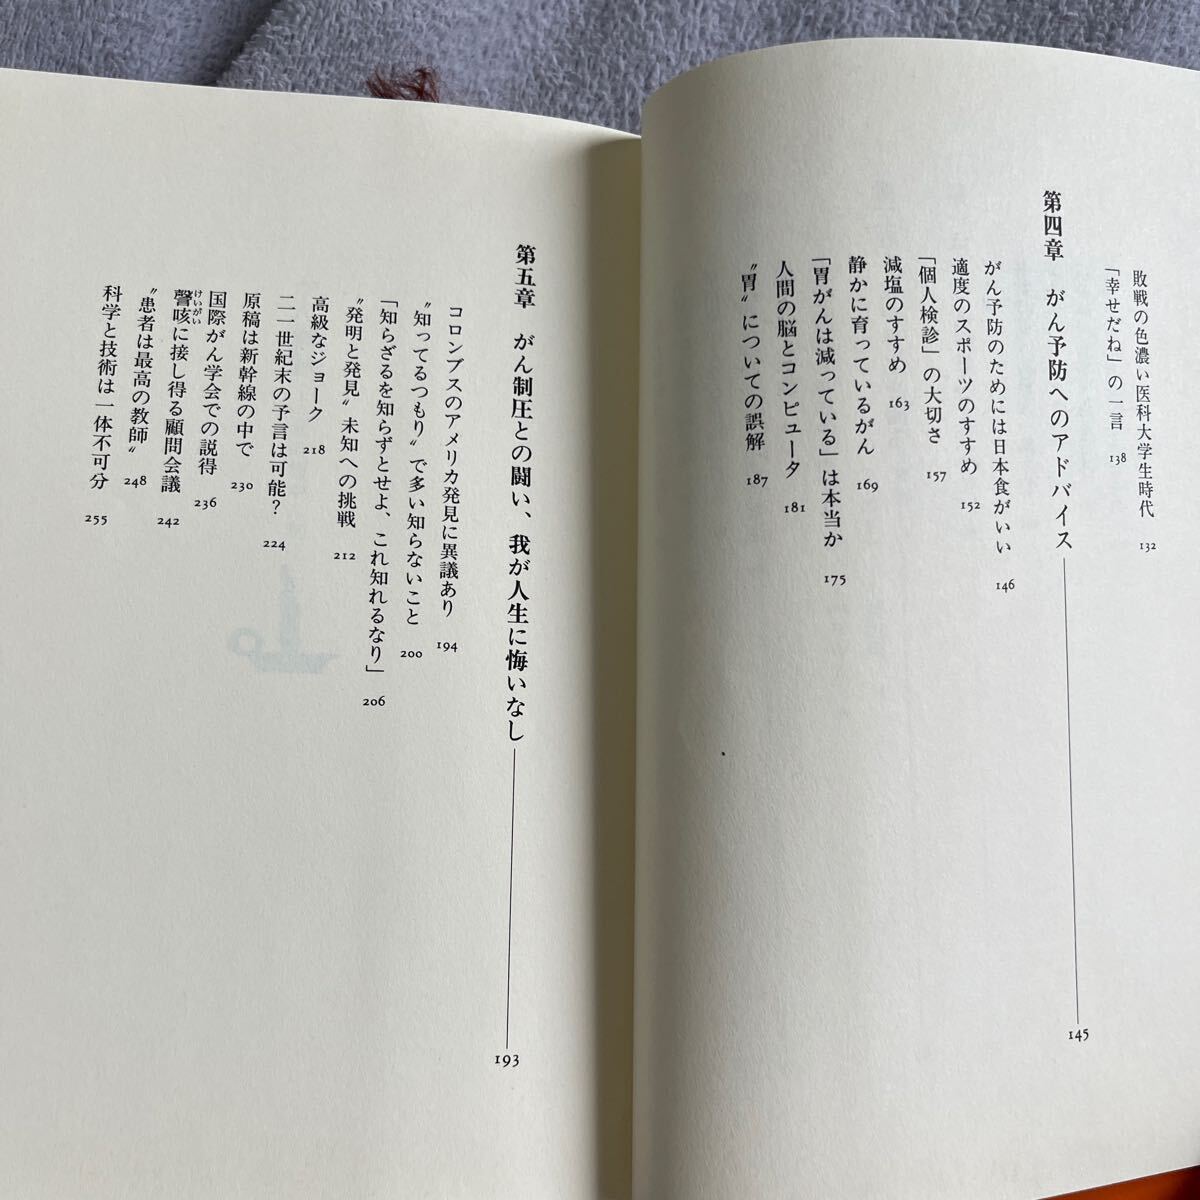 敗戦の色濃い医科大学生時代 132
「幸せだね」の一言 138
第四章 がん予防へのアドバイス 145
がん予防のためには日本食がいい 146
適度のスポーツのすすめ 152
「個人検診」の大切さ 157
減塩のすすめ 163
静かに育っているがん 169
「胃がんは減っている」は本当か 175
人間の脳とコンピュータ 181
〝胃〟についての誤解 187
第五章 がん制圧との闘い、我が人生に悔いなし 193
コロンブスのアメリカ発見に異議あり 194
〝知ってるつもり〟で多い知らないこと 200
「知らざるを知らずとせよ、これ知れるなり」 206
〝発明と発見〟未知への挑戦 212
高級なジョーク 218
二一世紀末の予言は可能? 224
原稿は新幹線の中で 230
国際がん学会での説得 236
謦咳に接し得る顧問会議 242
けいがい
〝患者は最高の教師〟 248
科学と技術は一体不可分 255